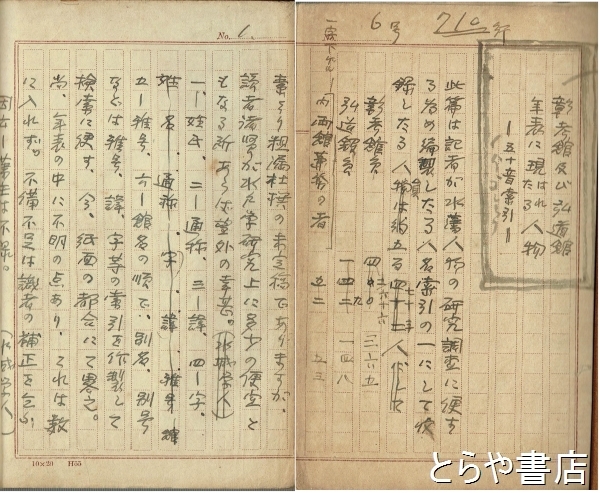 710行
6号
一字下ケル
彰考館及び弘道館
年表に現はれたる人物
―五十音索引―
此篇は記者が水藩人物の研究調査に便する為め編製したる人名索引の一にして収
録したる人員は約五百七十三人にして
彰考館員
弘道館員
内両館兼務の者
三六九
一四八
五二
五三
No. 1
素より粗漏杜撰の未定稿でありますが、
読者諸賢が水戸学研究上に多少の便宜と
もなる所あらば望外の幸甚。(水城学人)
一、姓氏、二―通称、三―諱、四―字、
姓名、通称、字、諱、雅号
五―雅号、六―館名の順で、別名、別号
などは雅号、諱、字等の索引を作製して
検索に便す、今、紙面の都合にて略之。
尚、年表の中に不明の点あり、それは数
に入れず。不備不足は識者の補正を乞ふ
(水城学人)
10×20 H55
とらや書店